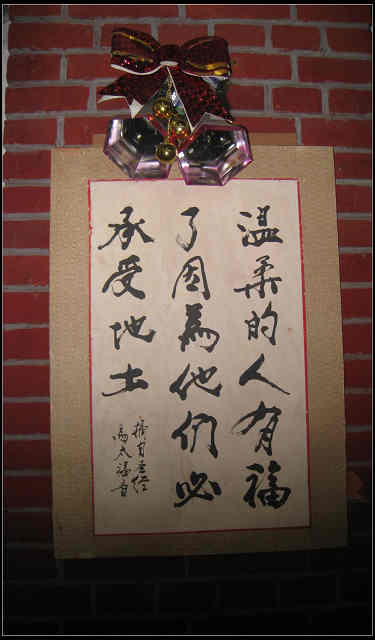 温柔的人有福
了因為他們必
承受地土
摘自圣经
馬太福音